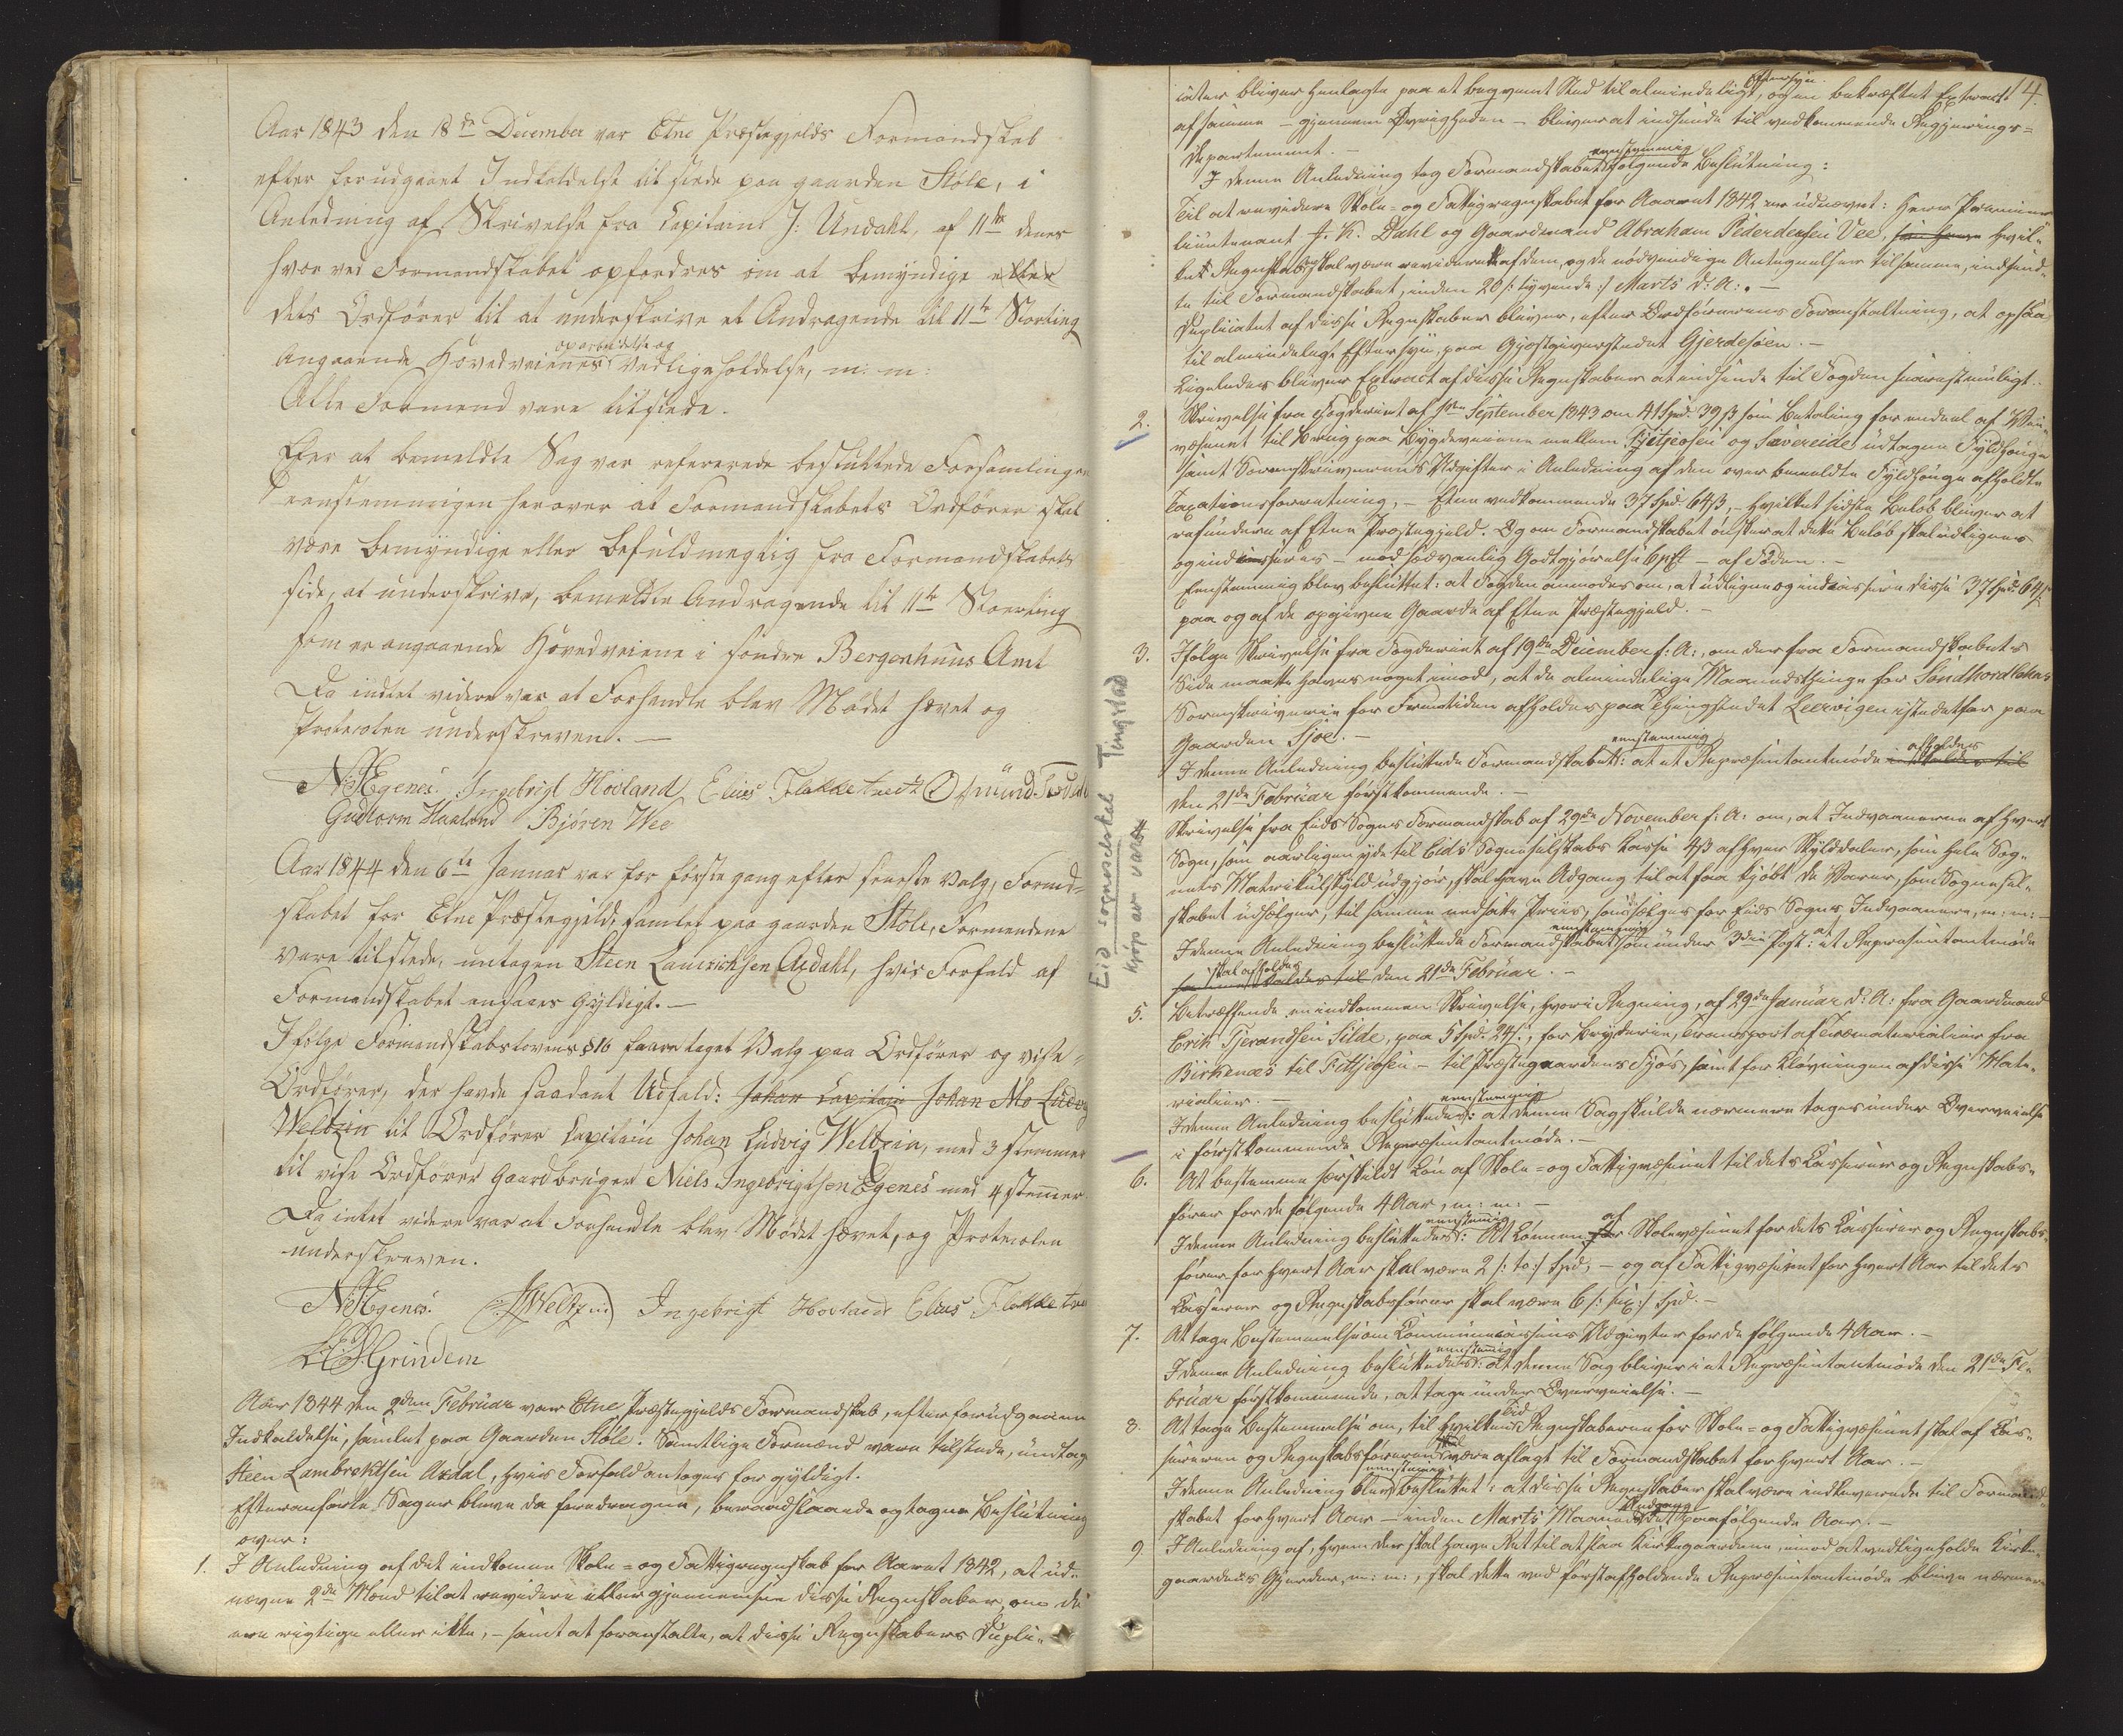 Aar 1843 den 18de December var Etne Præstegjelds Formandskab
efter forudgaaet Indkaldelse tilstede paa gaarden Støle, i
Anledning af Skrivelse fra Capitain J: Undahl, af 11te denes
hvorved Formandskabet opfordres om at bemyndige eller
dets Ordfører til at underskrive et Andragende til 11te Storting
angaaende Hovedveienes oparbeidelse og vedligeholdelse, m: m:
Alle Formend vare tilstede.
Efter at bemeldte Sag var refererede besluttede Forsamlingen
eenstemmigen herover at Formandskabets Ordfører skal
være bemyndige eller befuldmegtig fra Formandskabets
side, at underskrive, bemeldte Andragende til 11te Storting
som er angaaende Hovedveiene i søndre Bergenhuus Amt
Da indtet videre var at Forhandle blev Mødet hævet og
Protocolen underskreven. —
N: I: Egenes. Ingebrigt Hovland Elias Flokketvedt Osmund
Gudtorm Haaland Bjøren Wee
Aar 1844 den 6te Januar var for første gang efter seneste valg, Formd-
skabet for Etne Præstegjeld, samlet paa gaarden Støle, Formendene
vare tilstede, untagen Steen Lamrichsen Axdahl, hvis Forfald af
Formandskabet ansaaes gyldigt. —
Ifølge Formandskabslovens § 16 foretaget Valg paa Ordfører og vise-
Ordfører, der havde saadant Udfald: Johan Capitain Johan Mo Ludvig
Weltzin til Ordfører Capitain Johan Ludvig Weltzin, med 3 stemmer
til vise Ordfører gaardbruger Niels Ingebrigtsen Egenes med 4 stemmer.
Da intet videre var at Forhandle blev Mødet hævet, og Protocolen
underskreven.
N: I: Egenes. Weltzin Ingebrigt Hovland Elias Flokketve
Grindem
Aar 1844 den 2den Februar var Etne Præstegjelds Formandskab, efter forudgaaen
Indkaldelse, samlet paa Gaarden Støle. Samtlige Formænd vare tilstede, undtag
Steen Lambrektsen Axdal, hvis Forfald antoges for gyldigt.
Efteranførte Sager bleve da foredragne, beraadslaaede og tagne Beslutning
over:
1. I Anledning af det indkomne Skole- og Fattigregnskab for Aaret 1842, at ud-
nævne 2de Mænd til at revidere eller gjennemsee disse Regnskaber, om de
ere rigtige eller ikke, – samt at foranstalte, at disse Regnskabers Dupli-
4.
cater bliver henlagte paa et beqvemt Sted til almindeligt Eftersyn, og en bekræftet Extract
af samme – gjennem Øvrigheden – bliver at indsende til vedkommende Regjerings-
Departement. –
I denne Anledning tog Formandskabet eenstemmig følgende Beslutning:
Til at revidere Skole- og Fattigregnskabet for Aaret 1842 er udnævnt: Herr Premier-
lieutenant J. K. Dahl og Gaardmand Abraham Pedersen Vee, hvil-
ket Regnskab skal være revideret af dem, og de nødvendige Antegnelser til samme, indsend-
te til Formandskabet, inden 20 /: tyvende :/ Marts d: A: . –
Duplicatet af disse Regnskaber bliver, efter Ordførerens Foranstaltning, at opslaa
til almindeligt Eftersyn, paa Gjæstgiverstedet Gjerdesøen. –
Ligeledes bliver Extract af disse Regnskaber at indsende til Fogden snarest muligt.
2. Skrivelse fra Fogderiet af September 1843 om 41 Spd. 39 ß som Betaling for endeel af Vei-
væsenet til Brug paa Bygdeveiene mellem Fitjeosen og Sævereide udtagne Fyldhouge
samt Sorenskriverens Udgifter i Anledning af den over bemeldte Fyldhouge afholdte
Taxationsforretning, – Etne vedkommende 37 Spd. 64 ß, – hvilket sidste Beløb bliver at
refundere af Etne Præstegjeld. Og om Formandskabet ønsker at dette Beløb skal udlignes
og indcasseres – mod sædvanlig Godtgjørelse 6 pCt – af Foden. –
Eenstemmig blev besluttet: at Fogden anmodes om, at udligne og indcassere disse 37 Spd. 64 ß
paa og af de opgivne Gaarde af Etne Præstegjeld. –
3. Ifølge Skrivelse fra Fogderiet af 19de December f: A:, om der fra Formandskabets
Side maatte haves noget imod, at de almindelige Maanedsthinge for Søndhordlehns
Sorenskriverie for Fremtiden afholdes paa Thingstedet Leervigen istedetfor paa
Gaarden Sjoe. –
I denne Anledning besluttede Formandskabet eenstemmig: at et Repræsentantmøde afholdes indkaldes til
den 21de Februar førstkommende. –
Skrivelse fra Eids Sogns Formandskab af 29de November f: A: om, at Indvaanerne af hvert
Sogn, som aarligen yde til Eids Sogneselskabs Casse 4 ß af hver Skylddaler, som hele Sog-
nets Matrikulskyld udgjør, skal have Adgang til at faa kjøbt de Varer, som Sognesel-
skabet udsælger, til samme nedsatte Priis, som sælges for Eids Sogns Indvaanere, m: m: –
I denne Anledning besluttede Formandskabet eenstemmig som under 3die Post: at et Repræsentantmøde
skal afholdes indkaldes til den 21de Februar. –
5. Betræffende en indkommen Skrivelse, hvori Regning, af 29de Januar d: A: fra Gaardmand
Erik Tjerandsen Silde, paa 5 Spd. 24 ß, for Bryderie, Transport af Træmaterialier fra
Birkenæs til Fitjeosen – til Præstegaardens Fjøs, samt for Kløvningen af disse Mate-
rialier. –
I denne Anledning besluttedes eenstemmig: at denne Sag skulde nærmere tages under Overveielse
i førstkommende Repræsentantmøde. –
6. At bestemme særskildt Løn af Skole- og Fattigvæsenet til dets Casserer og Regnskabs-
fører for de følgende 4 Aar, m: m: –
I denne Anledning besluttedes eenstemmig: At Lønnen for af Skolevæsenet for dets Casserer og Regnskabs-
fører for hvert Aar skal være 2 /: to :/ Spd, – og af Fattigvæsenet for hvert Aar til dets
Casserer og Regnskabsfører skal være 6 /: sex :/ Spd. –
7. At tage Bestemmelse om Communecassens Udgivter for de følgende 4 Aar. –
I denne Anledning besluttedes eenstemmig: at denne Sag bliver i et Repræsentantmøde den 21de Fe-
bruar førstkommende, at tage under Overveielse. –
8. At tage Bestemmelse om, til hvilken Tid Regnskaberne for Skole- og Fattigvæsenet skal af Cas-
sereren og Regnskabsføreren være aflagt til Formandskabet for hvert Aar. –
I denne Anledning blev eenstemmig besluttet: at disse Regnskaber skal være indleverede til Formand-
skabet for hvert Aar – inden Marts Maaneds Udgang det paafølgende Aar. –
9. I Anledning af, hvem der skal have Ret til at slaa Kirkegaardene, imod at vedligeholde Kirke-
gaardens Gjærder, m: m:, skal dette ved førstafholdende Repræsentantmøde blive nærmere
Tingstad
Eid sogneselskal
kjøp av varer